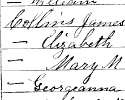 — William
Collins James
— Elizabeth
— Mary M
— Georgeanna